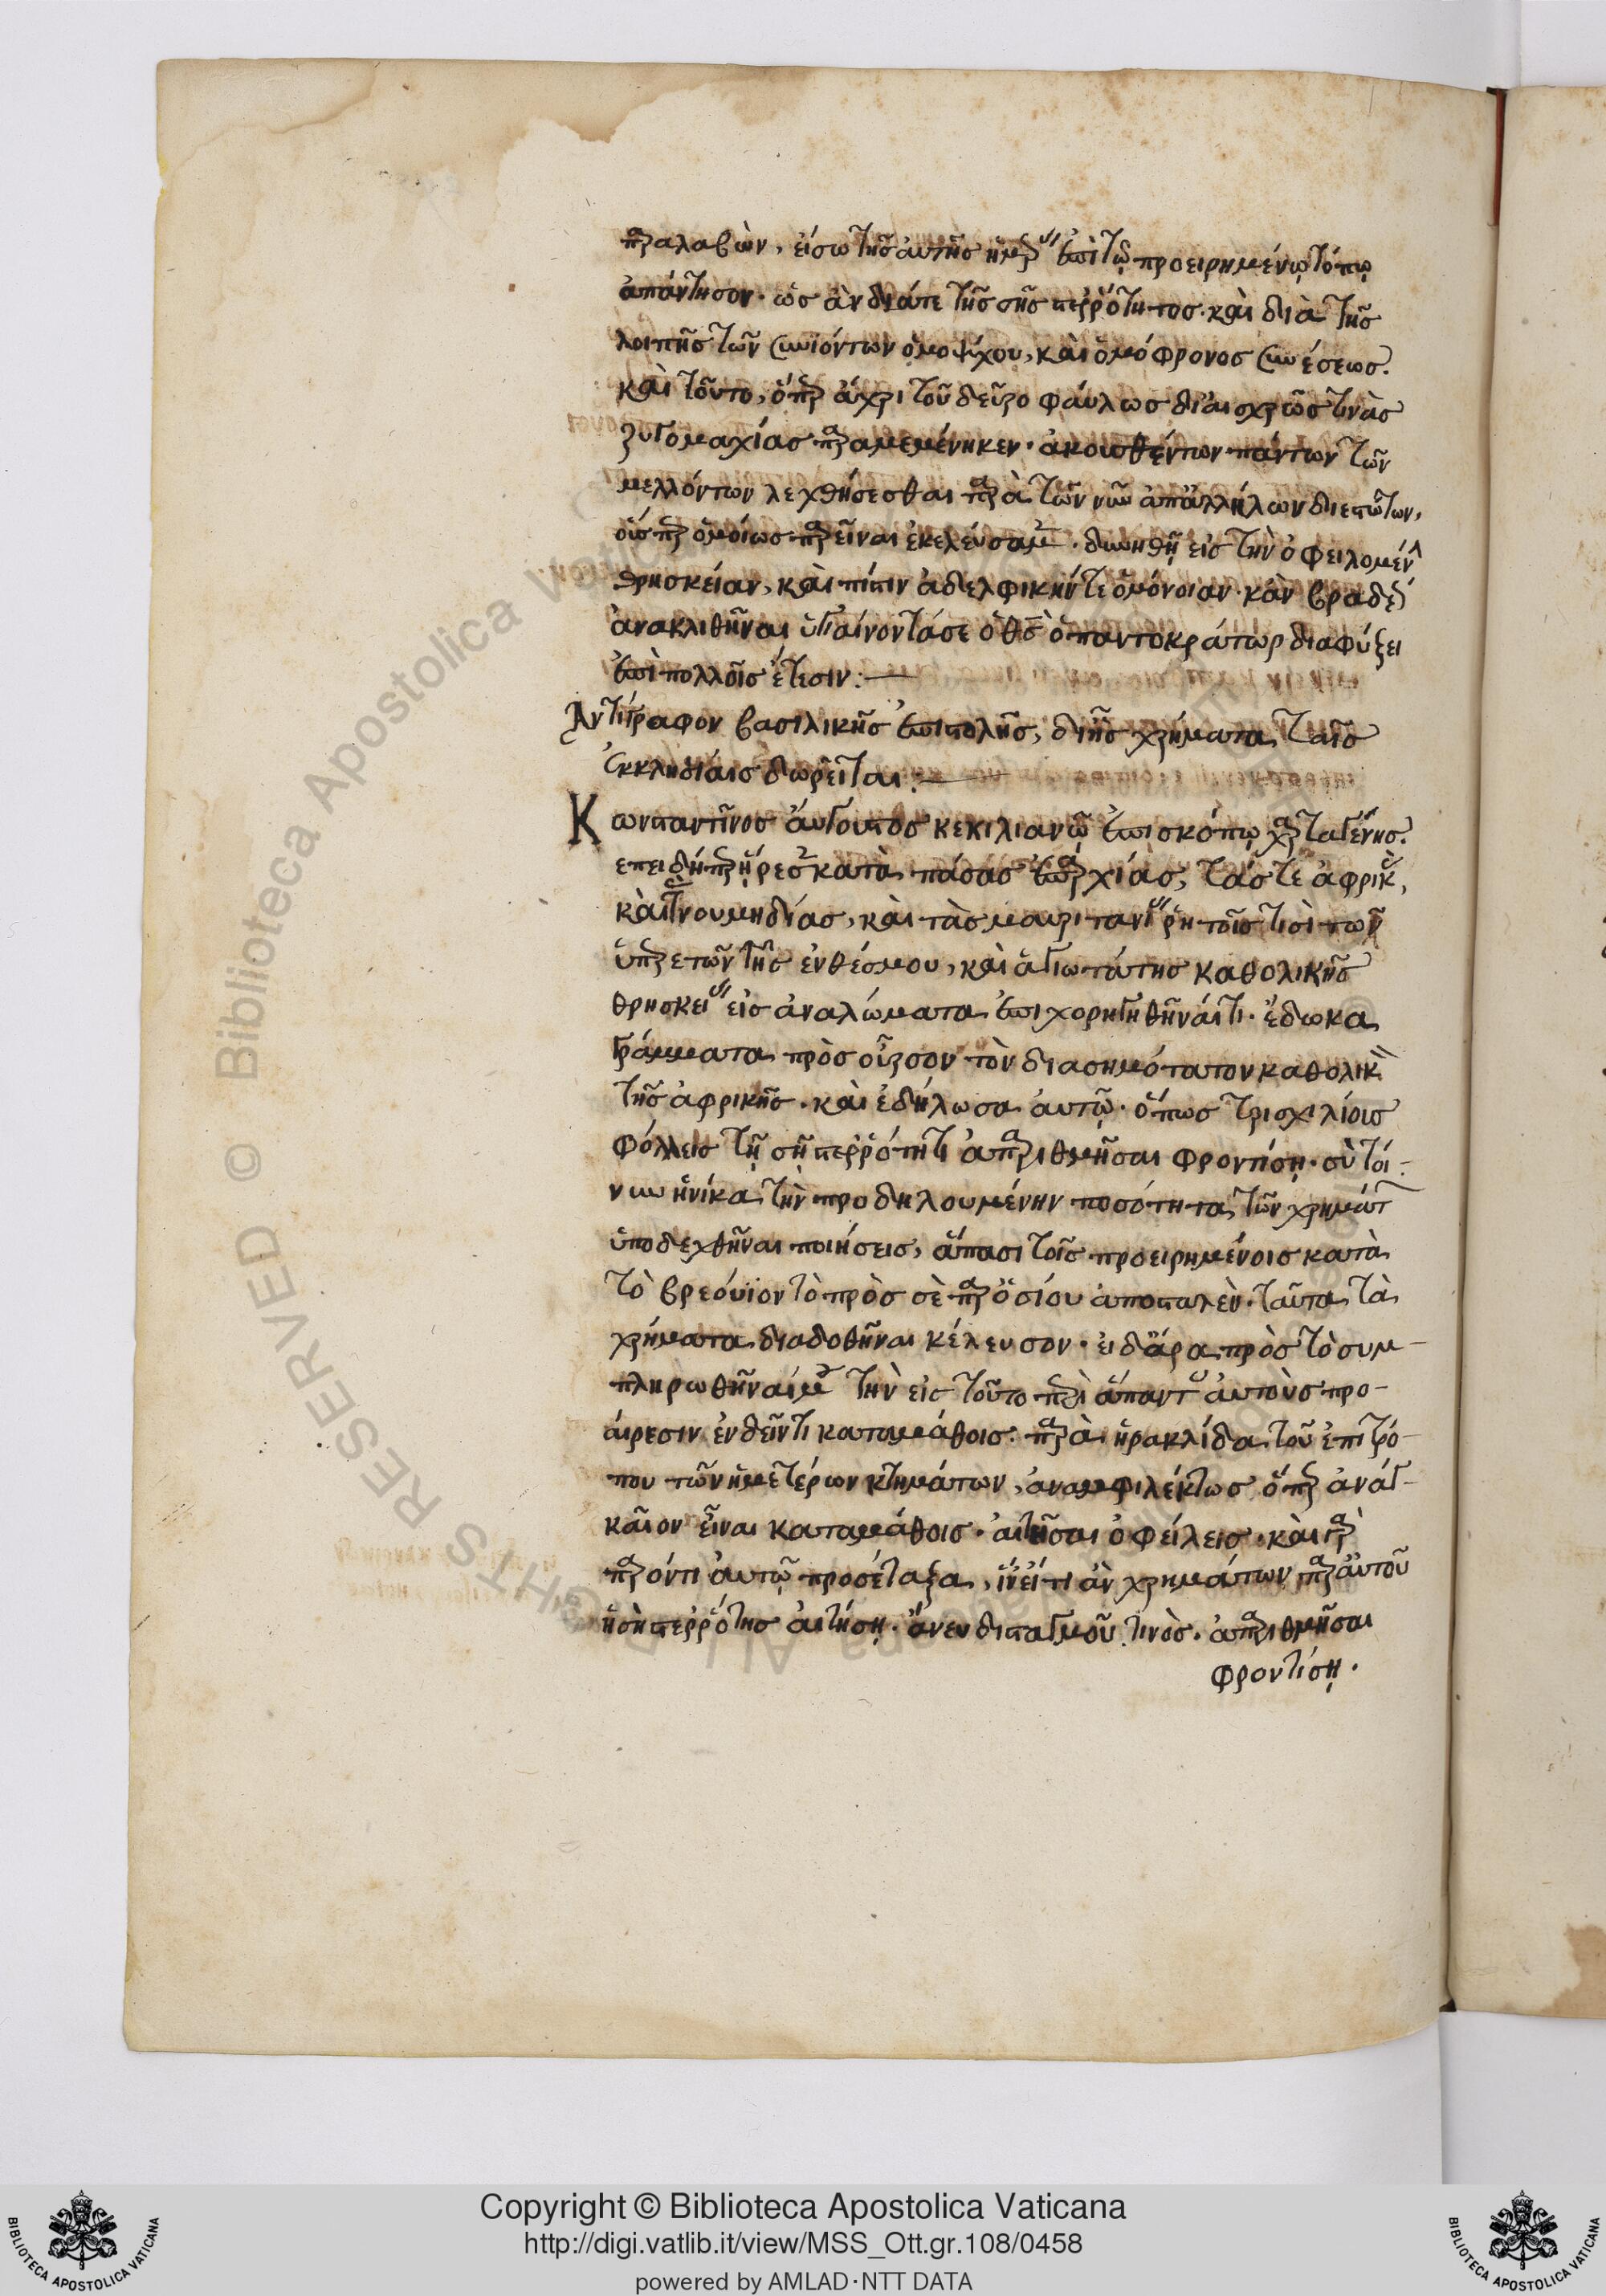 παραλαβὼν, εἴσω τῆς αὐτῆς ἡμέρας ἐπὶ τῷ προειρημένῳ τόπῳ
ἀπάντησον· ὡς ἂν διά τε τῆς σῆς στερρότητος· καὶ διὰ τῆς
λοιπῆς τῶν συνϊόντων ὁμοψύχου, καὶ ὁμόφρονος συνέσεως.
καὶ τοῦτο, ὅπερ ἄχρι τοῦ δεῦρο φαύλως δι' αἰσχρᾶς τινὰς
ζυγομαχίας παραμεμένηκεν· ἀκουσθέντων πάντων τῶν
μελλόντων λεχθήσεσθαι παρὰ τῶν νῦν ἀπ' ἀλλήλων διεστώτων,
οὕσπερ ὁμοίως παρεῖναι ἐκελεύσαμεν· δυνηθῇ εἰς τὴν ὀφειλομένην
θρησκείαν, καὶ πίστιν ἀδελφικήν τε ὁμόνοιαν· κἂν βραδέως
ἀνακληθῆναι ὑγιαίνοντά σε ὁ θς ὁ παντοκράτωρ διαφύξει
ἐπὶ πολλοῖς ἔτεσιν:—
Ἀντίγραφον βασιλικῆς ἐπιστολῆς, δι' ἧς χρήματα ταῖς
ἐκκλησίαις δωρεῖται:—
Κωνσταντῖνος ἄυγουστος κεκιλιανῷ ἐπισκόπῳ χαρταγένης.
ἐπειδήπερ ἤρεσεν κατὰ πάσας ἐπαρχίας, τάς τε ἀφρικὰς,
καὶ τὰς νουμηδίας, καὶ τὰς μαυριτανίας ῥητοῖς τισὶ τῶν
ὑπηρετῶν τῆς ἐνθέσμου, καὶ ἁγιωτάτης καθολικῆς
θρησκείας εἰς ἀναλώματα ἐπιχορηγηθῆναί τι· ἔδωκα
γράμματα πρὸς οὖρσον τὸν διασημότατον καθολικὸν
τῆς ἀφρικῆς· καὶ ἐδήλωσα αὐτῷ· ὅπως τρισχιλίοις
φόλλεις τῇ σῇ στερρότητι ἀπαριθμῆσαι φροντίσῃ· σὺ τοί-
νυν ἡνίκα τὴν προδηλουμένην ποσότητα τῶν χρημάτων
ὑποδεχθῆναι ποιήσεις, ἅπασι τοῖς προειρημένοις κατὰ
τὸ βρεούϊον τὸ πρὸς σὲ παρ' ὁσίου ἀποσταλὲν· ταῦτα τὰ
χρήματα διαδοθῆναι κέλευσον· εἰ δ' ἄρα πρὸς τὸ συμ-
πληρωθῆναί μου τὴν εἰς τοῦτο περὶ ἅπαντας αὐτοὺς προ-
αίρεσιν ἐνδεῖν τι καταμάθοις· παρὰ ἡρακλίδα τοῦ ἐπιτρό-
που τῶν ἡμετέρων κτημάτων, ἀναμφιλέκτως ὅπερ ἀναγ-
καῖον εἶναι καταμάθοις· αἰτῆσαι ὀφείλεις· καὶ γὰρ
παρόντι αὐτῷ προσέταξα, ἵν' εἴ τι ἂν χρημάτων παρ' αὐτοῦ
ἡ σὴ στερρότης αἰτήσῃ· ἄνευ δισταγμοῦ τινὸς· ἀπαριθμῆσαι
φροντίσῃ.
Copyright © Biblioteca Apostolica Vaticana
http://digi.vatlib.it/view/MSS_Ott.gr.108/0458
powered by AMLAD·NTT DATA